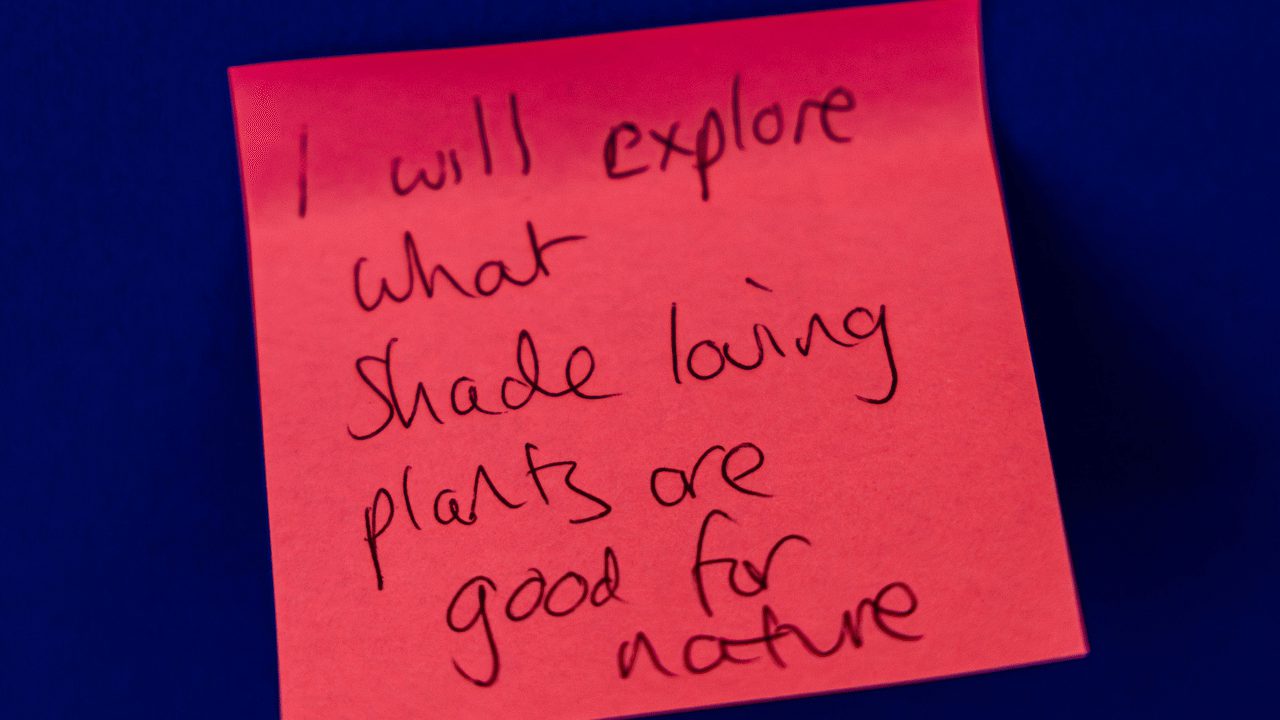 I will explore
what
Shade loving
plants are
good for
nature